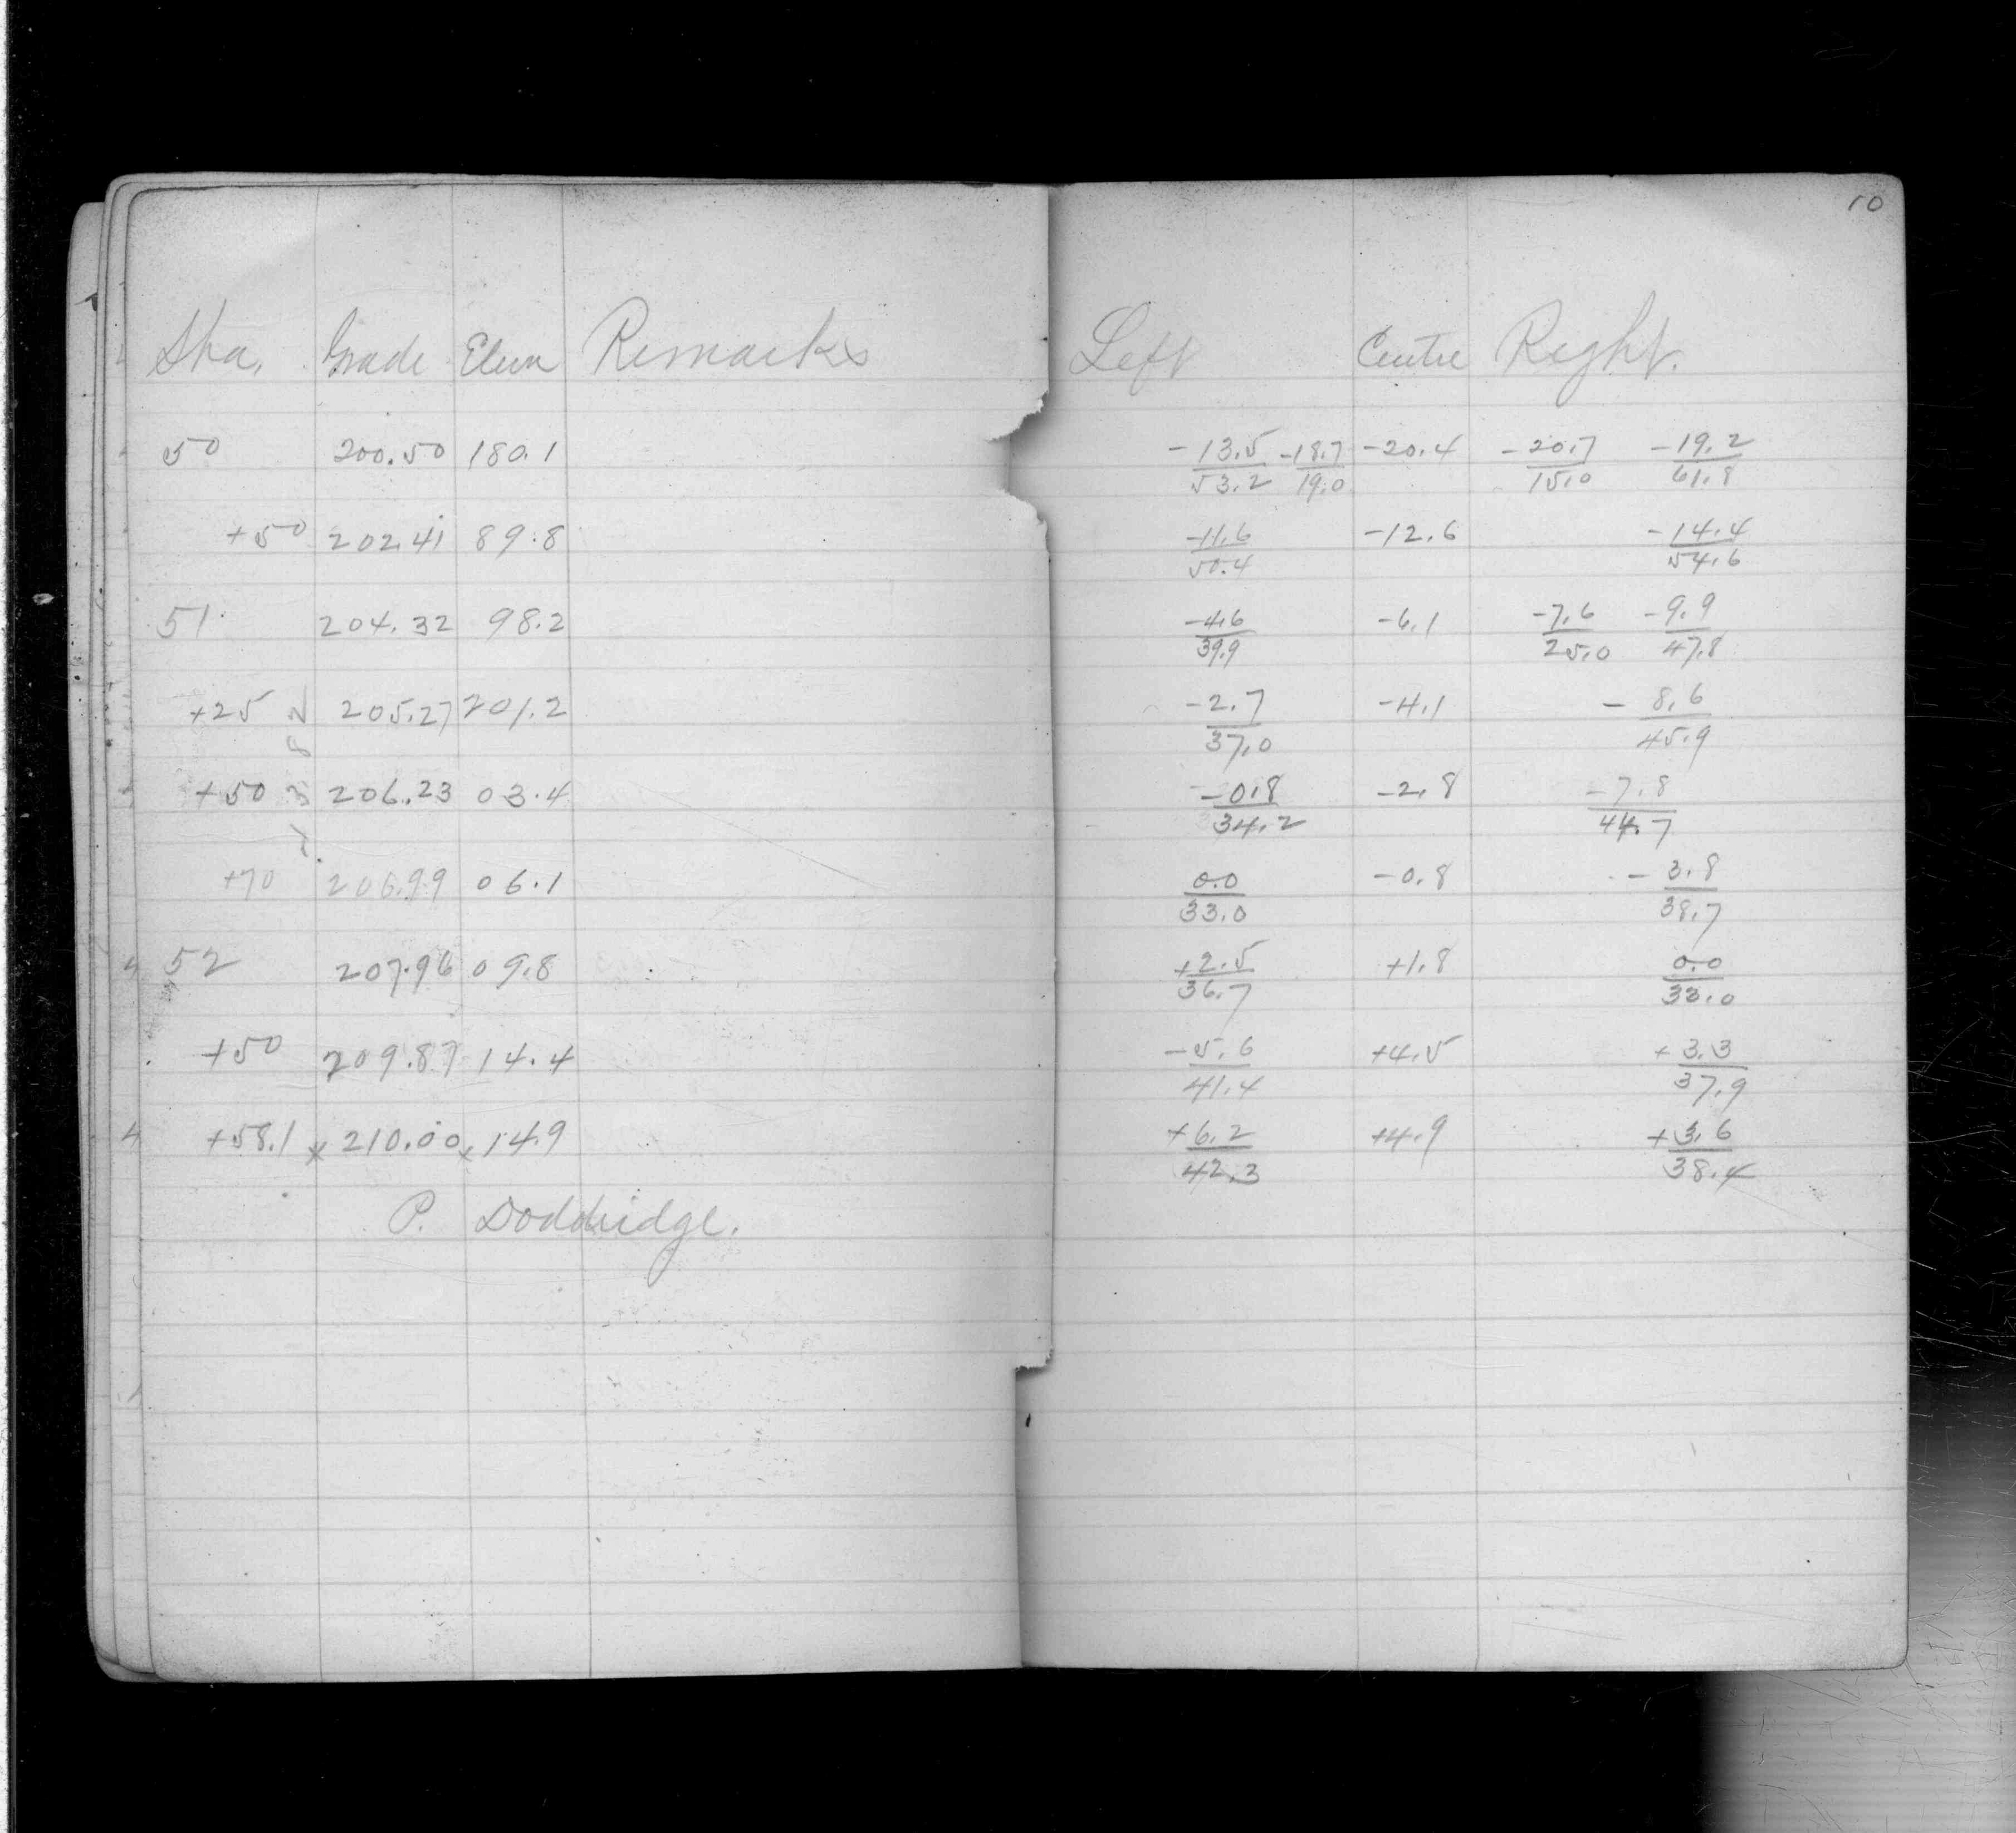 10
Sta. Grade Elev Remarks Left Centre Right.
50 200.50 180.1 -13.5 -18.7 -20.4 -20.7 -19.2
53.2 19.0 15.0 61.8
+50 202.41 89.8 -11.6 -12.6 -14.4
50.4 54.6
51 204.32 98.2 -4.6 -6.1 -7.6 -9.9
39.9 25.0 47.8
+25 205.27 201.2 -2.7 -4.1 -8.6
37.0 45.9
+50 206.23 03.4 -0.8 -2.8 -7.8
34.2 44.7
+70 206.99 06.1 0.0 -0.8 -3.8
33.0 38.7
52 207.96 09.8 +2.5 +1.8 0.0
36.7 33.0
+50 209.87 14.4 -5.6 +4.5 +3.3
41.4 37.9
+58.1 x 210.00 x 14.9 +6.2 +4.9 +3.6
42.3 38.4
P. Doddridge.